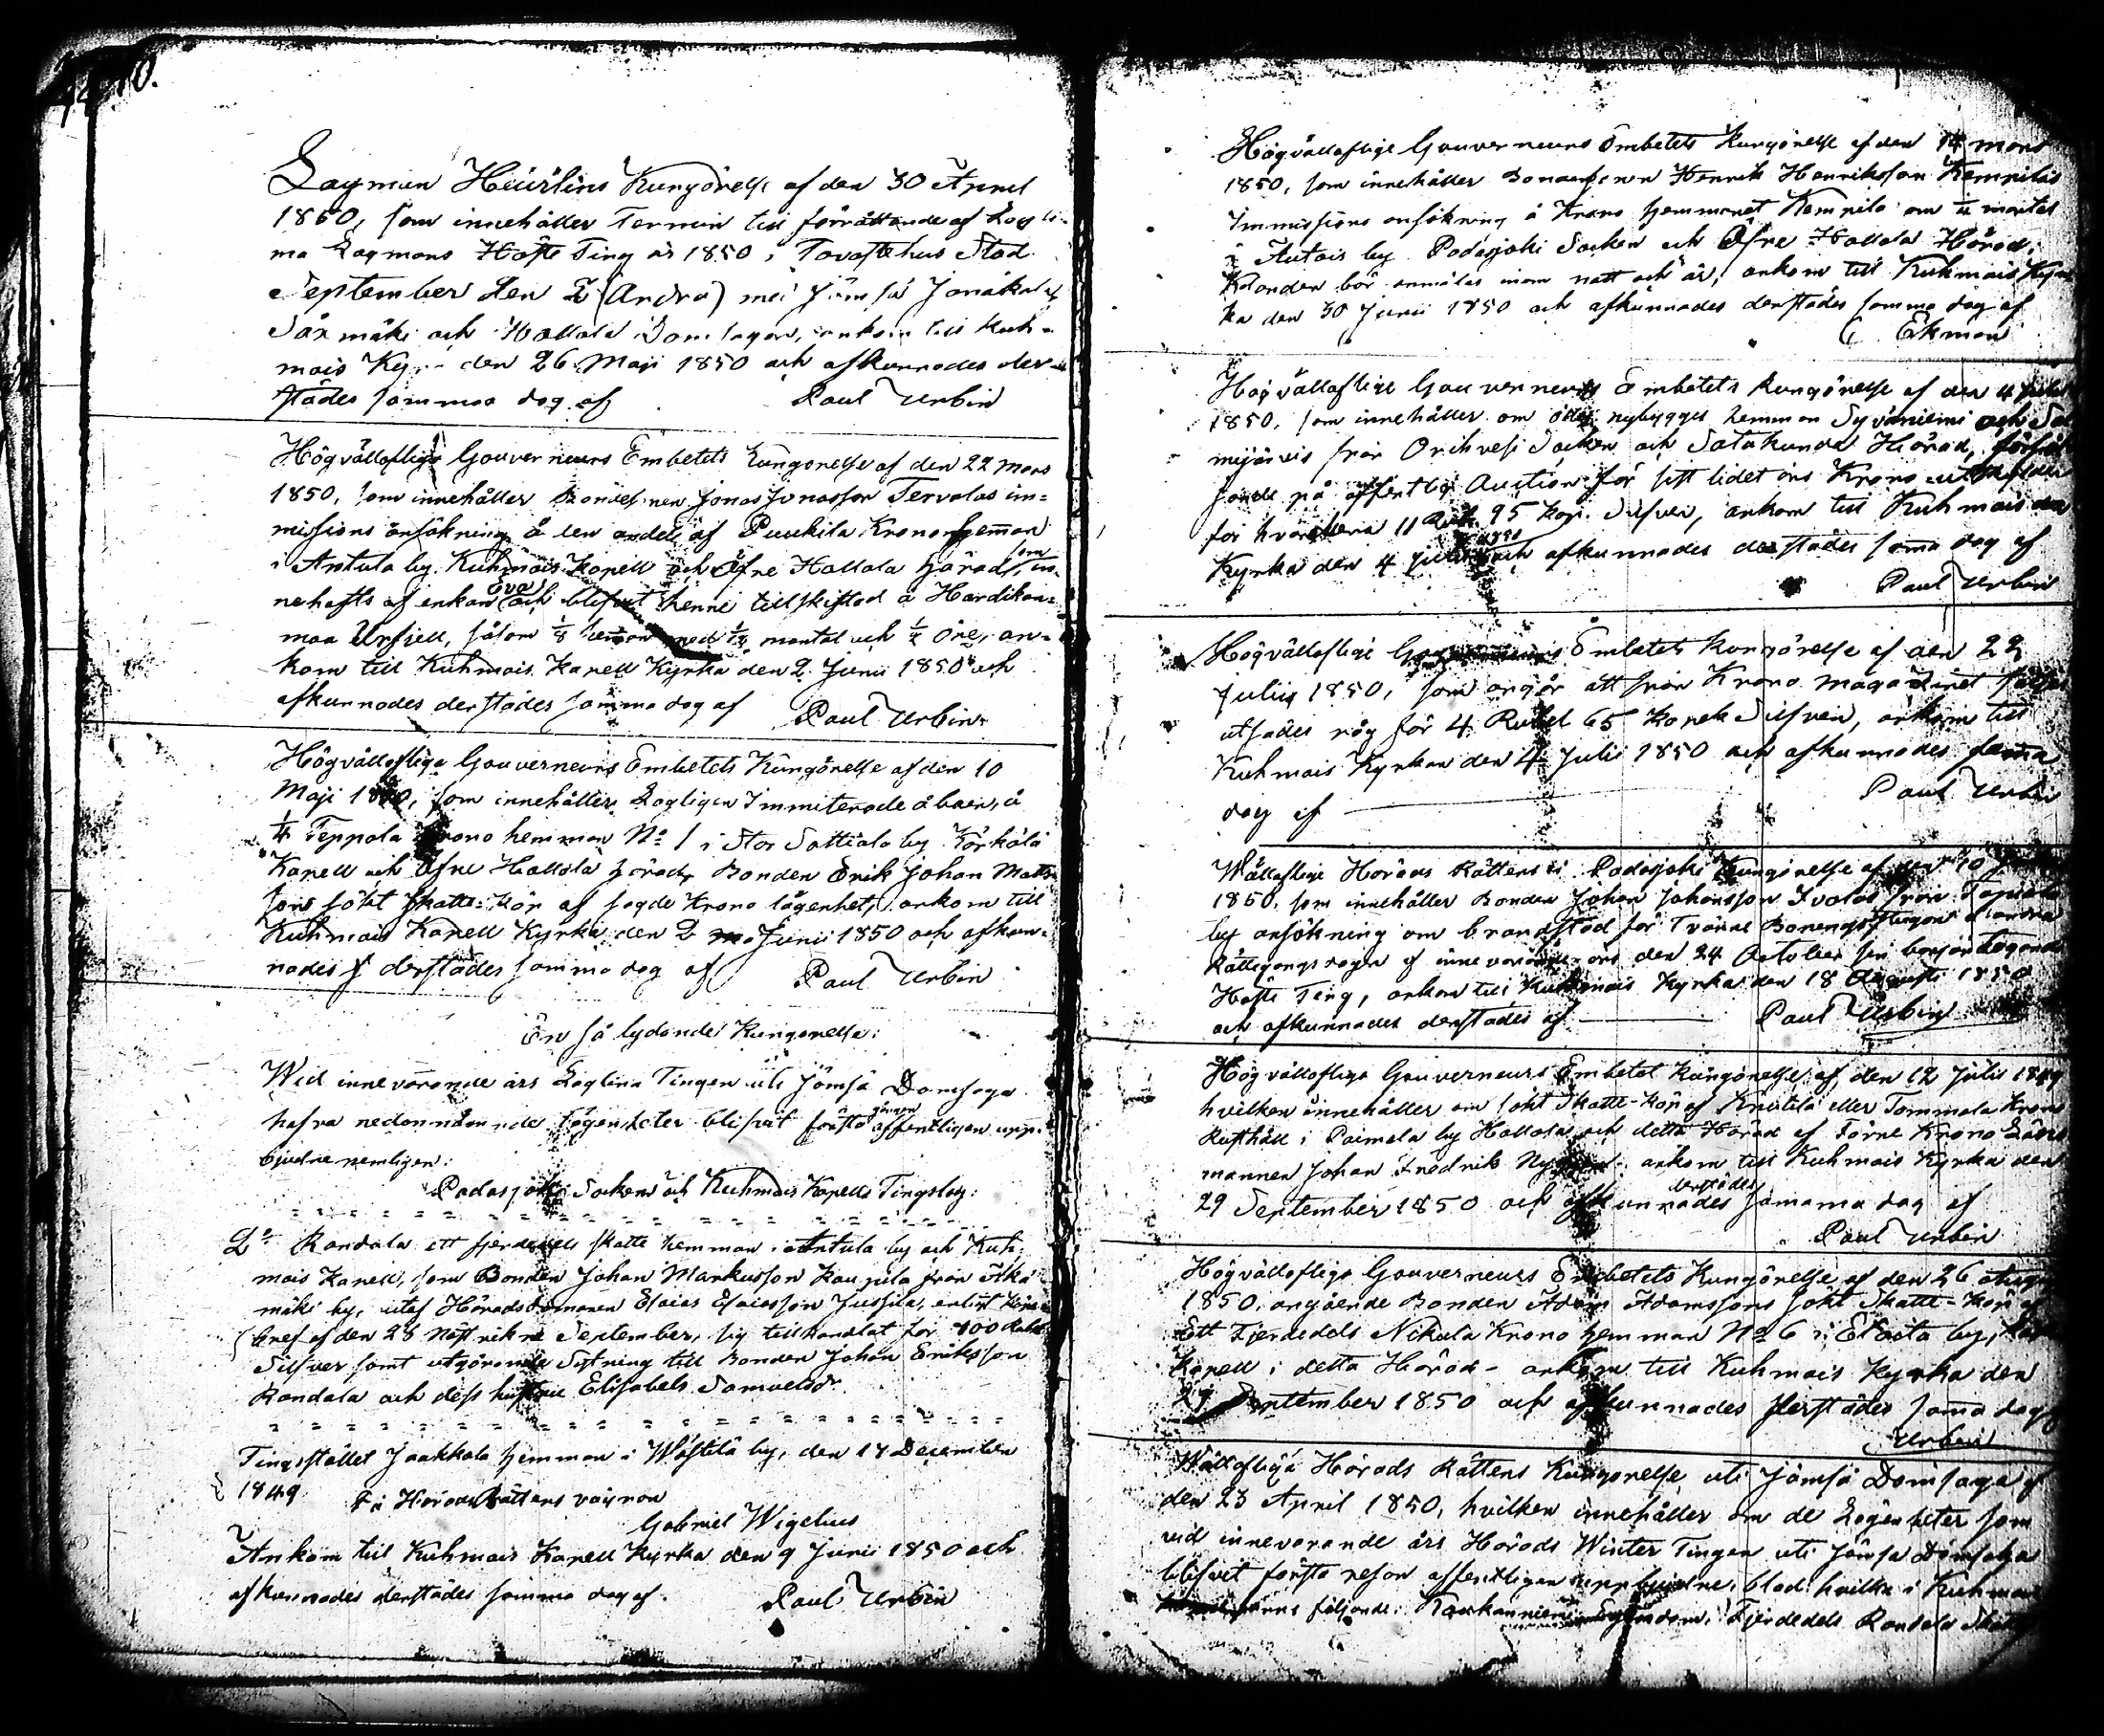 Lagman Heürlins Kungörelse af den 30 April
1850, som innehåller Termin till förrättande af Lagti-
ma Lagmans Höste Ting år 1850, i Tavastehus Stad
September den 2 (Andra) med Jämsä Janakala
Säxmäki och Hollola Domsagor, ankom till Kuh-
mois Kyrka den 26 Maji 1850 och afkunnades der-
städes samma dag af Paul Urbin
Högvällofliga Gouverneurs Embetets Kungörelse af den 22 Mars
1850, som innehåller Bondesonen Jonas Jonasson Tervalas im-
missions ansökning å den andel af Puukila Kronohemman
i Antula by Kuhmois Kapell och Öfre Hollola Härad, som in-
nehafts af enkan Eva och blifvit henne tillskiftad å
maa Urfjell, såsom 1/8 hemman med mantal och öre, an-
kom till Kuhmois Kapell Kyrka den 2 Junii 1850 och
afkunnades derstädes samma dag af Paul Urbin
Högvällofliga Gouverneurs Embetets Kungörelse af den 10
Maji 1850, som innehåller Lagligen Immiterade åboen, å
1/4 Teppola Krono hemman No 1 i Stor Sattiala by Kärkölä
Kapell och Öfre Hollola härad, Bonden Erik Johan Matts-
sons sökt Skatte-köp af sagde Krono lägenhet, ankom till
Kuhmois Kapell Kyrka den 2 Junii 1850 och afkun-
nades derstädes samma dag af Paul Urbin
En så lydande Kungörelse:
Wid innevarande års Lagtima Tingen uti Jämsä Domsaga
hafva nedannämnde Lägenheter blifvit första gången offentligen upp-
budne nemligen:
Padasjoki Sockens och Kuhmois Kapells Tingslag:
2o Randala ett fjerdedels skatte hemman i Antula by och Kuh-
mois Kapell, som Bonden Johan Markusson Kaupila från
mäki by, utaf Häradsdomaren Esaias Esaiasson Jussila, enligt Köpe-
bref af den 28 nästvikne September, sig tillhandlat för 400 Rubel
Silfver samt utgörande Sytning till Bonden Johan Eriksson
Randala och dess hustru Elisabets Samuelsdr
Tingsstället Jaakkola hemman i Wästilä by, den 14 December
1849. På HäradsRättens vägnar
Gabriel Wigelius
Ankom till Kuhmois Kapell Kyrka den 9 Junii 1850 och
afkunnades derstädes samma dag af Paul Urbin
Högvällofliga Gouverneurs Embetets Kungörelse af den 14 Mars
1850, som innehåller Bondesonen Henrik Henriksson Kempilas
Immissions ansökning å Krono hemmanet Kempila om 1/4 mantal
i Autois by Padasjoki Socken och Öfre Hollola Härad,
Klandern bör anmälas inom natt och år, ankom till Kuhmois Kyr-
ka den 30 Junii 1850 och afkunnades derstädes samma dag af
C. Ekman
Högvällofliga Gouverneurs Embetets Kungörelse af den 4
1850, som innehåller om öde nybygget hemman Syväniemi och
från Orihvesi Socken och Satakunda Härad,
på offentlig Auction för sist lidet års Krono utskylder
för hvardera 11 Rub. 95 kop. Silfver, ankom till Kuhmois
Kyrka den 4 Julii 1850 och afkunnades derstädes samma dag af
Paul Urbin
Högvällofliga Embetets Kungörelse af den 22
Julii 1850, som angår att från Krono magazinet säljes
utsädes råg för 4 Rubel 65 kopek Silfver, ankom till
Kuhmois Kyrka den 4 Julii 1850 och afkunnades samma
dag af Paul Urbin
Wällofliga Härads Rättens i Padasjoki Kungörelse af den 10
1850, som innehåller Bonden Johan Johansson Ivalas från
by ansökning om brandstod för Tvänne å andra
Rättegångs dagen af innevarande års den 24 October sin början tagande
Höste Ting, ankom till Kuhmois Kyrka den 18 Augusti 1850
och afkunnades derstädes af Paul Urbin
Högvällofliga Gouverneurs Embetet Kungörelse af den 12 Julii 1849
hvilken innehåller om sökt Skatte-köp af Knutila eller Tommola Krono
Rusthåll i Paimela by Hollola och detta Härad af Förne Krono Läns
mannen Johan Fredrik ankom till Kuhmois Kyrka den
29 September 1850 och afkunnades derstädes samma dag af
Paul Urbin
Högvällofliga Gouverneurs Embetets Kungörelse af den 26
1850, angående Bonden Adam Adamssons sökt Skatte-köp af
Ett Fjerdedels Nikula Krono hemman No 6 i by,
Kapell i detta Härad - ankom till Kuhmois Kyrka den
29 September 1850 och afkunnades derstädes samma dag af
Urbin
Wällofliga Härads Rättens Kungörelse uti Jämsä Domsaga af
den 23 April 1850, hvilken innehåller om de Lägenheter som
vid innevarande års Härads Winter Tingen uti Jämsä Domsaga
blifvit första resan offentligen uppbudne, bland hvilka i
finns följande: Fjerdedels Randala